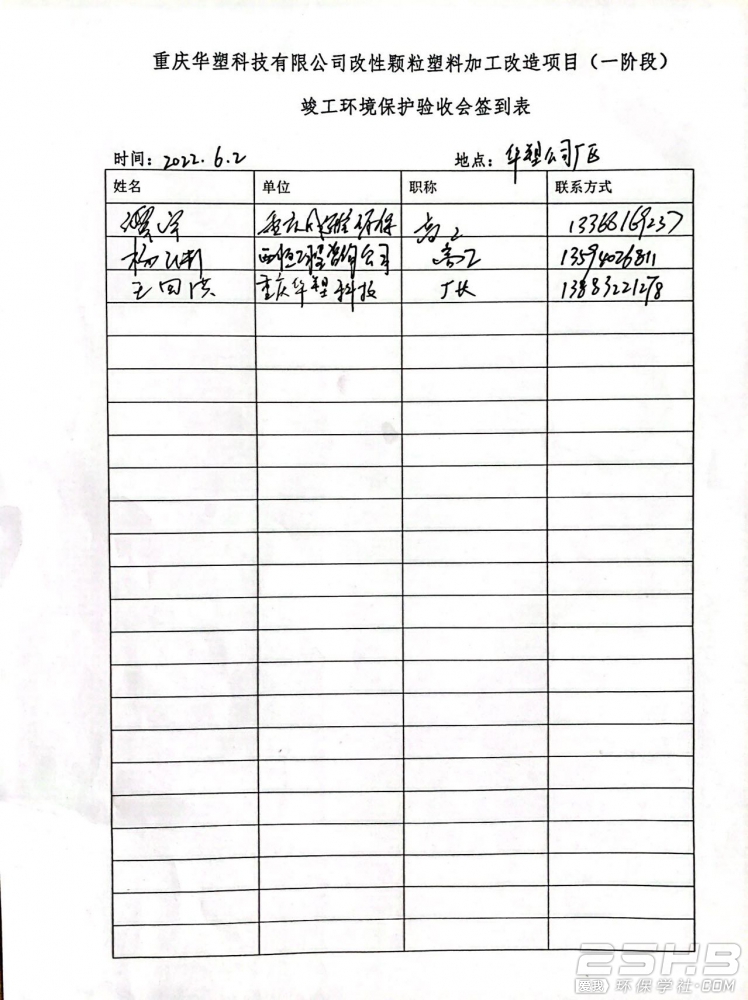 重庆华塑科技有限公司改性颗粒塑料加工改造项目（一阶段）
竣工环境保护验收会签到表
时间：2022.6.2 地点：华塑公司厂区
姓名 单位 职称 联系方式
重庆 环保 高工 13368169237
杨 工程咨询公司 高工 13594026811
王国洪 重庆华塑科技 厂长 13883221278
25HB
爱我 环保学社·COM